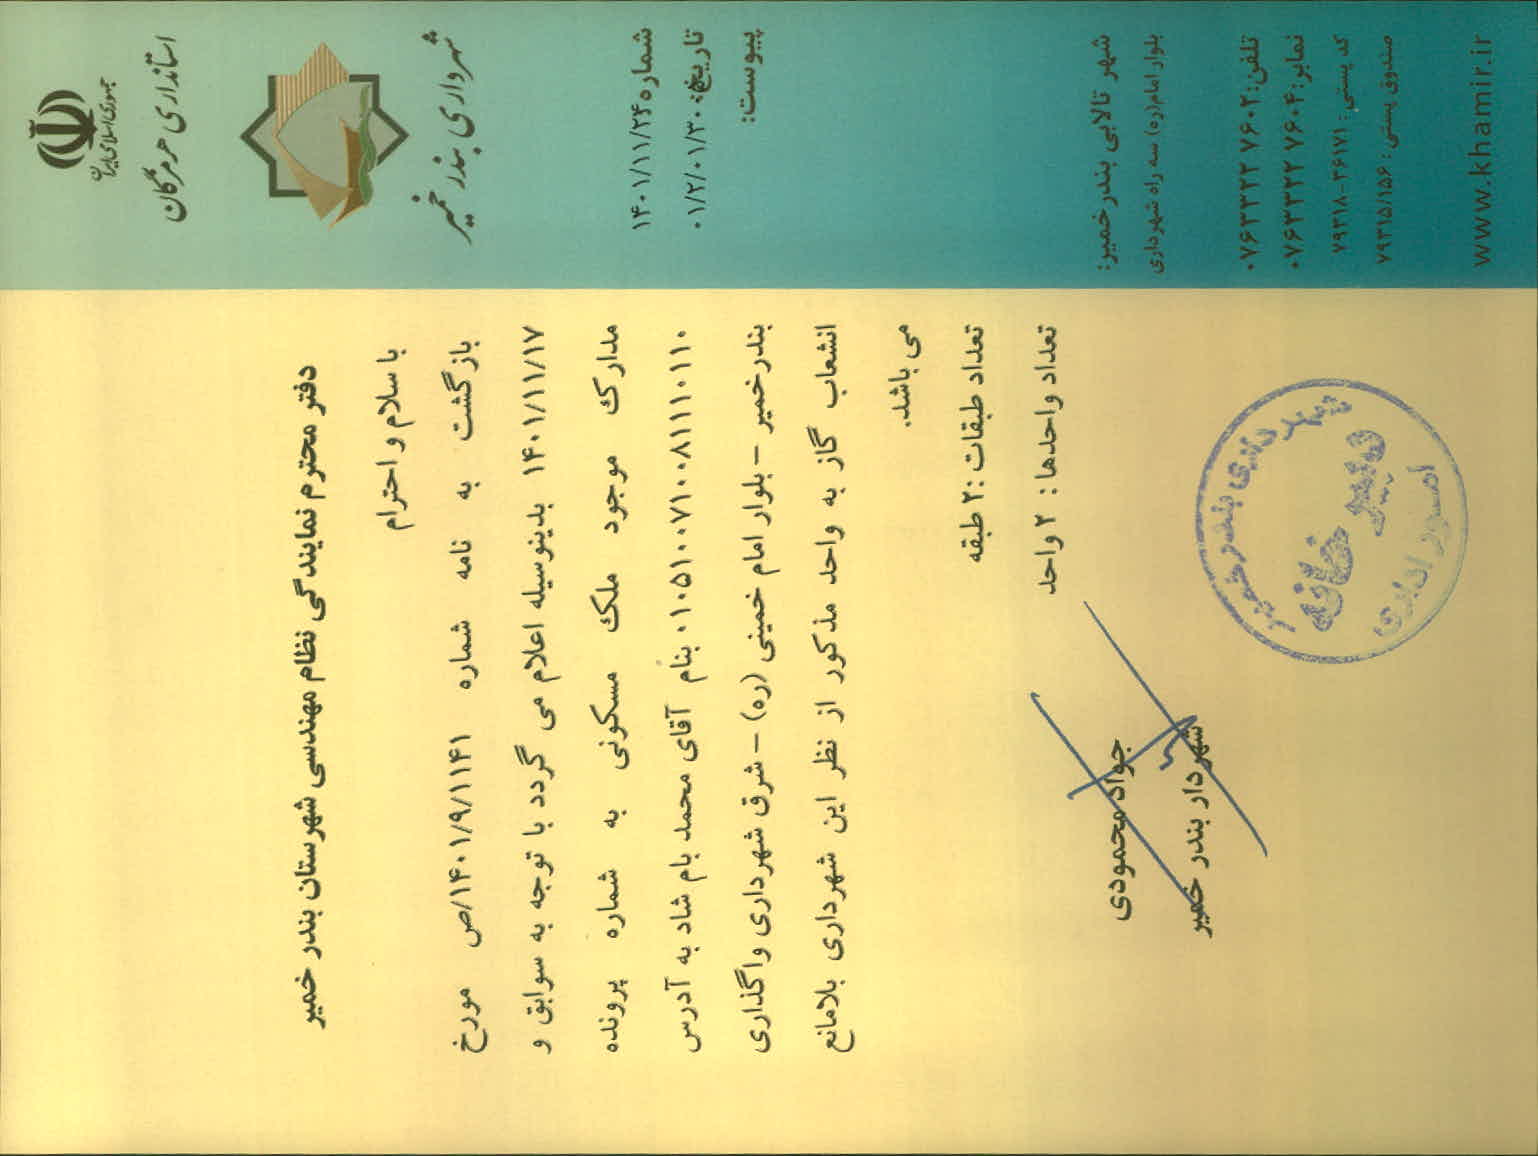 جمهوری اسلامی ایران
استانداری هرمزگان
شهرداری بندر خمیر
شماره ۱۴۰۱/۱۱/۲۴
تاریخ:
۰۱/۲/۰۱/۳۰۰
پیوست:
دفتر محترم نمایندگی نظام مهندسی شهرستان بندر خمیر
با سلام و احترام
بازگشت به نامه شماره ۱۴۰۱/۹/۱۱۴۱/ص مورخ
۱۴۰۱/۱۱/۱۷ بدینوسیله اعلام می گردد با توجه به سوابق و
مدارک موجود ملک مسکونی به شماره پرونده
۰۱۰۵۱۰۰۷۱۰۰۸۱۱۱۰۱۱۰ بنام آقای محمد بام شاد به آدرس
بندرخمیر – بلوار امام خمینی (ره) – شرق شهرداری واگذاری
انشعاب گاز به واحد مذکور از نظر این شهرداری بلامانع
می باشد.
تعداد طبقات :۲ طبقه
تعداد واحدها : ۲ واحد
جواد محمودی
شهردار بندر خمیر
شهرداری بندر خمیر
دبیرخانه
امور اداری
شهر تالابی بندرخمیر:
بلوار امام(ره) سه راه شهرداری
تلفن: ۰۷۶۳۳۲۲۷۶۰۲
نمابر: ۰۷۶۳۳۲۲۷۶۰۴
کد پستی: ۷۹۳۱۸-۳۶۱۷۱
صندوق پستی: ۷۹۳۱۵/۱۵۶
www.khamir.ir